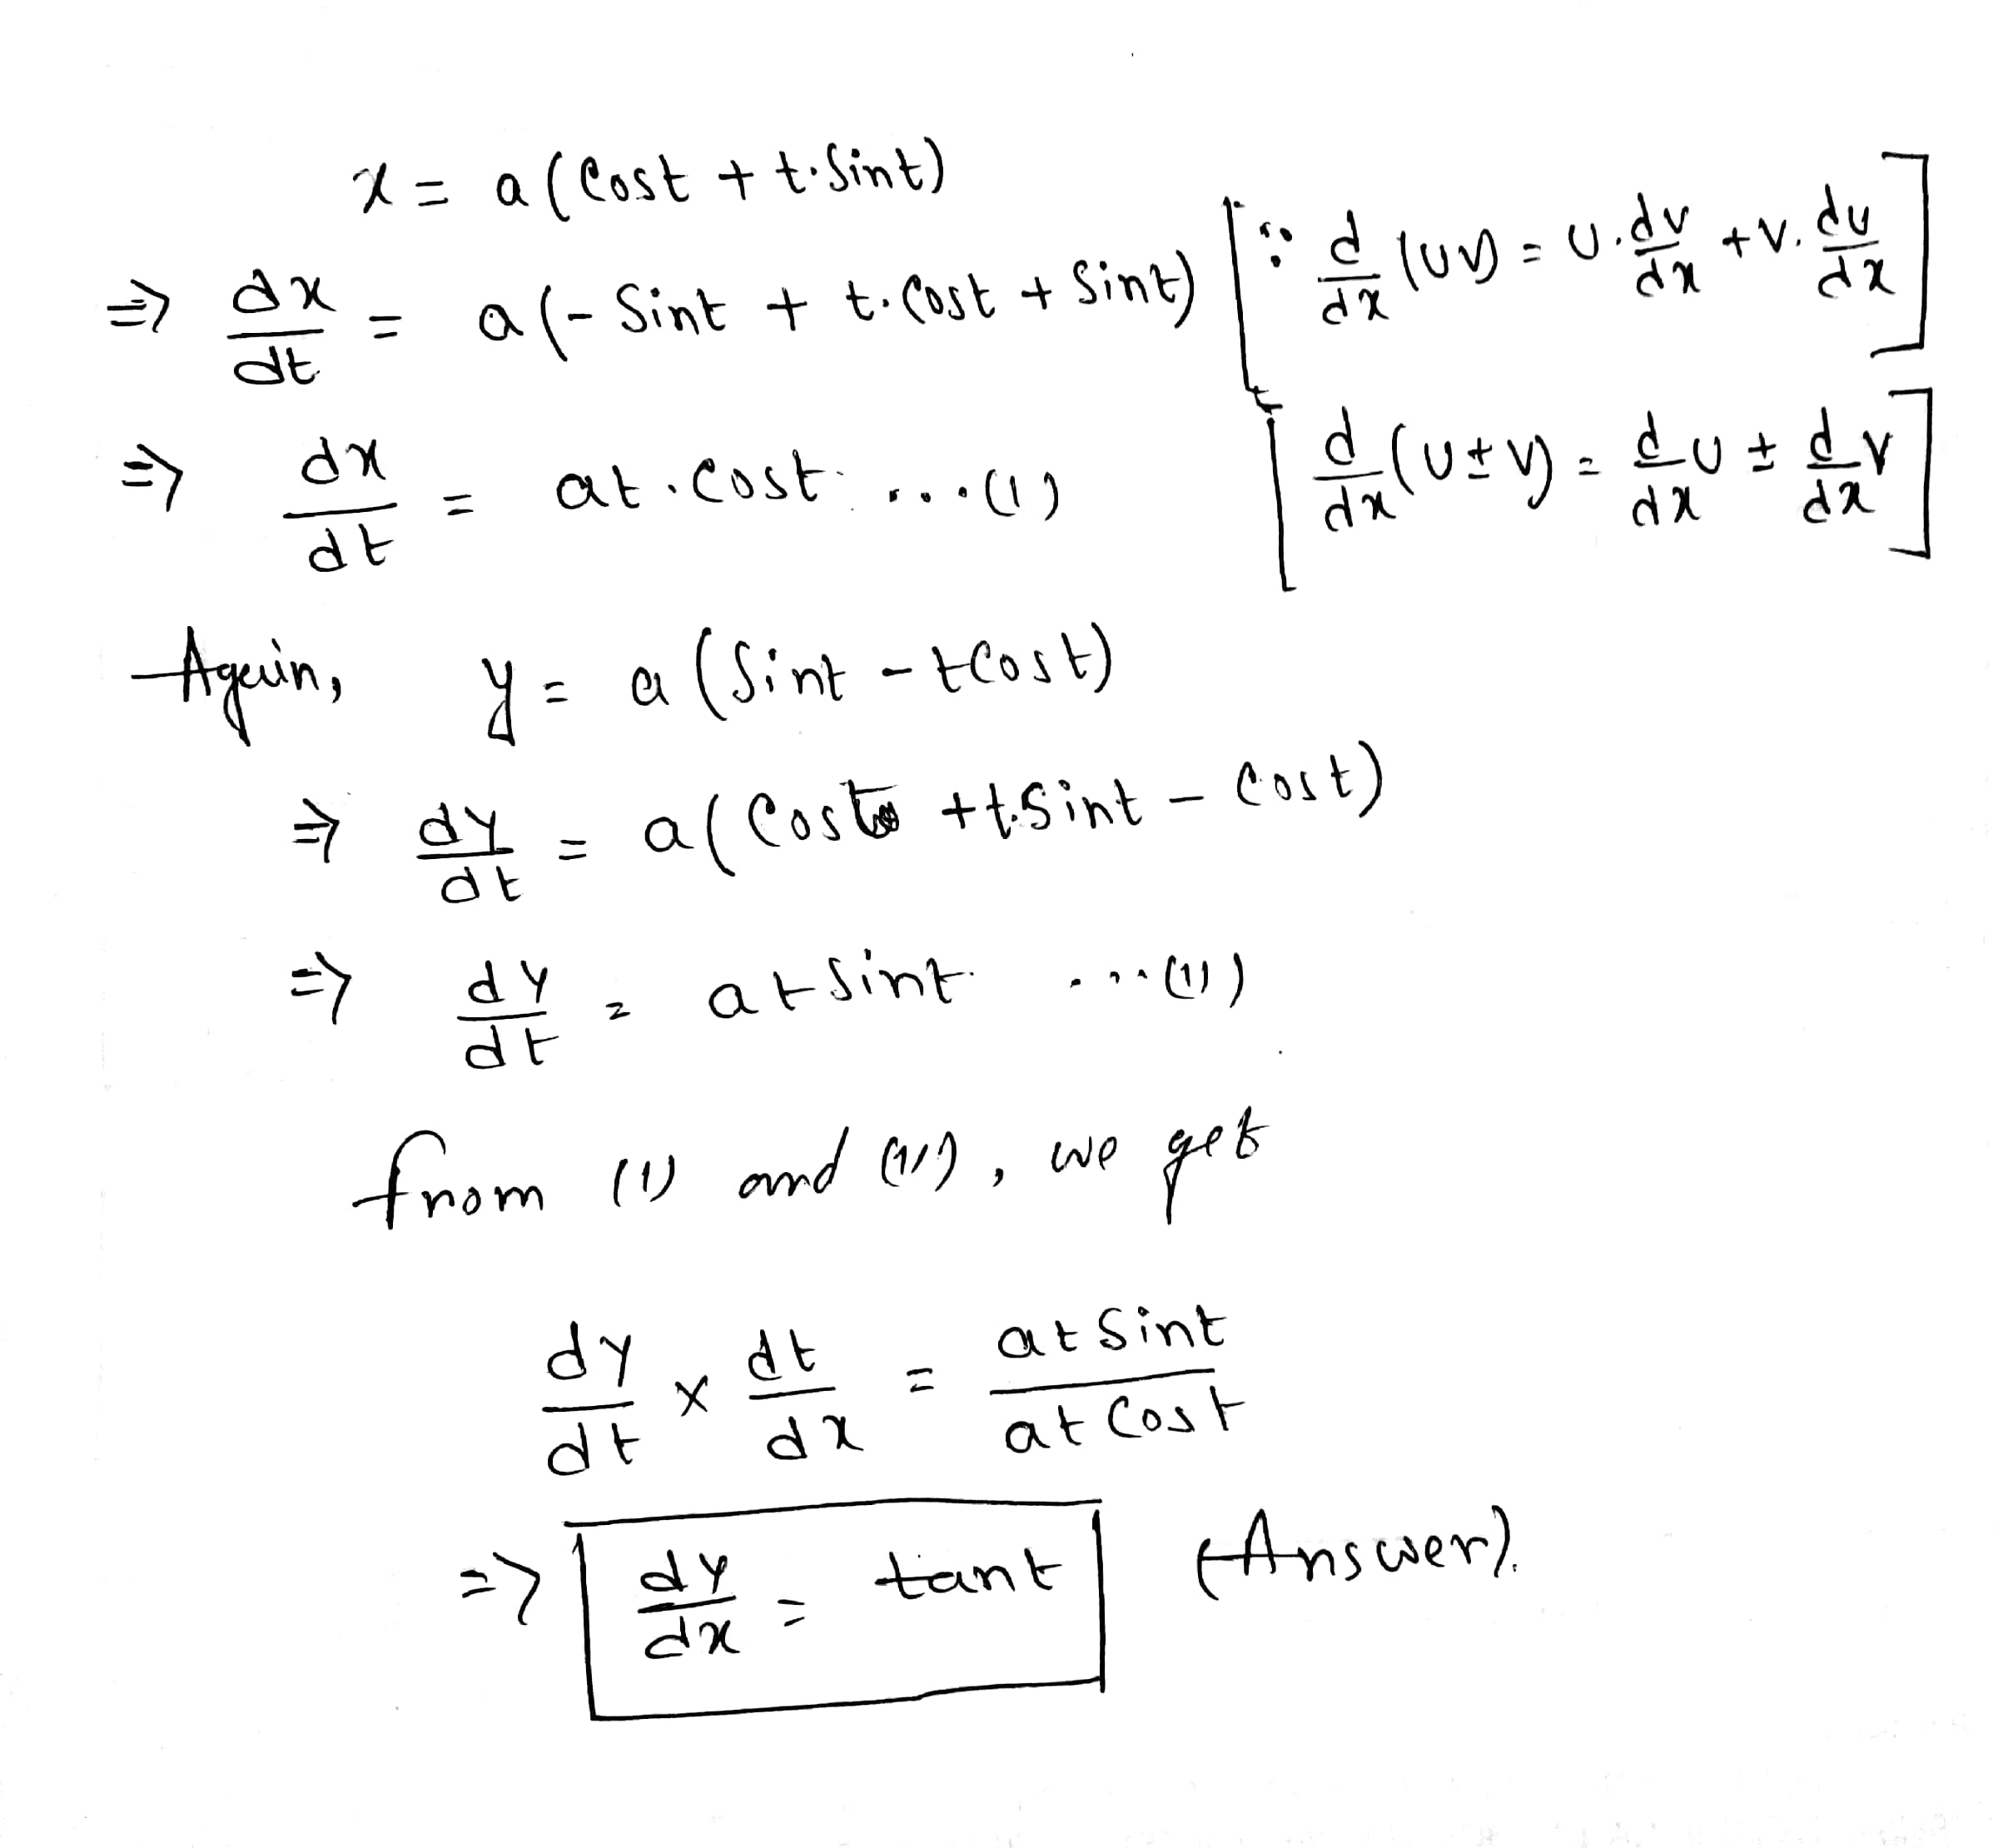 x = a(Cost + t.Sint)
⇒ dx/dt = a(-Sint + t.Cost + Sint) [∵ d/dx (UV) = U.dv/dx + V.du/dx]
⇒ dx/dt = at.Cost ....(1) [d/dx (U±V) = d/dx U ± d/dx V]
Again, y = a(Sint - tCost)
⇒ dy/dt = a(Cost + t.Sint - Cost)
⇒ dy/dt = atSint ....(11)
from (1) and (11), we get
dy/dt × dt/dx = atSint/atCost
⇒ dy/dx = tant (Answer).